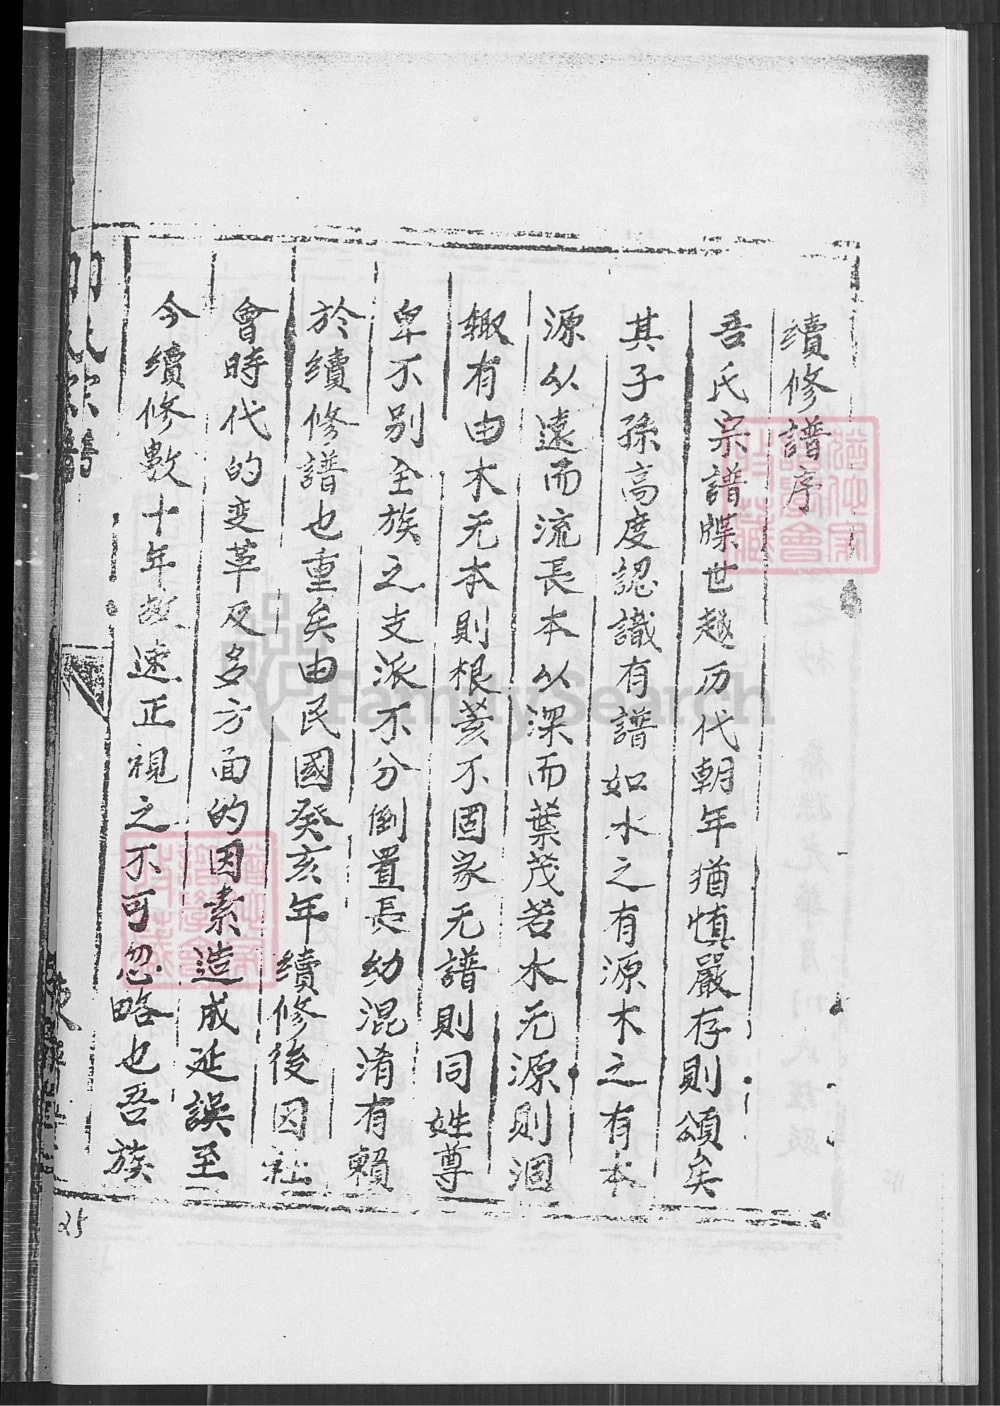 續修譜序
吾氏宗譜牒世越历代朝年猶慎嚴存則頌矣
其子孫高度認識有譜如水之有源木之有本
源以遠而流長本以深而葉茂若水无源則涸
輙有由木无本則根荄不固家无譜則同姓尊
卑不別全族之支派不分倒置長幼混淆有賴
於續修譜也重矣由民國癸亥年續修後因社
會時代的变革及多方面的因素造成延誤至
今續修數十年故速正視之不可忽略也吾族
宗譜
25
FamilySearch